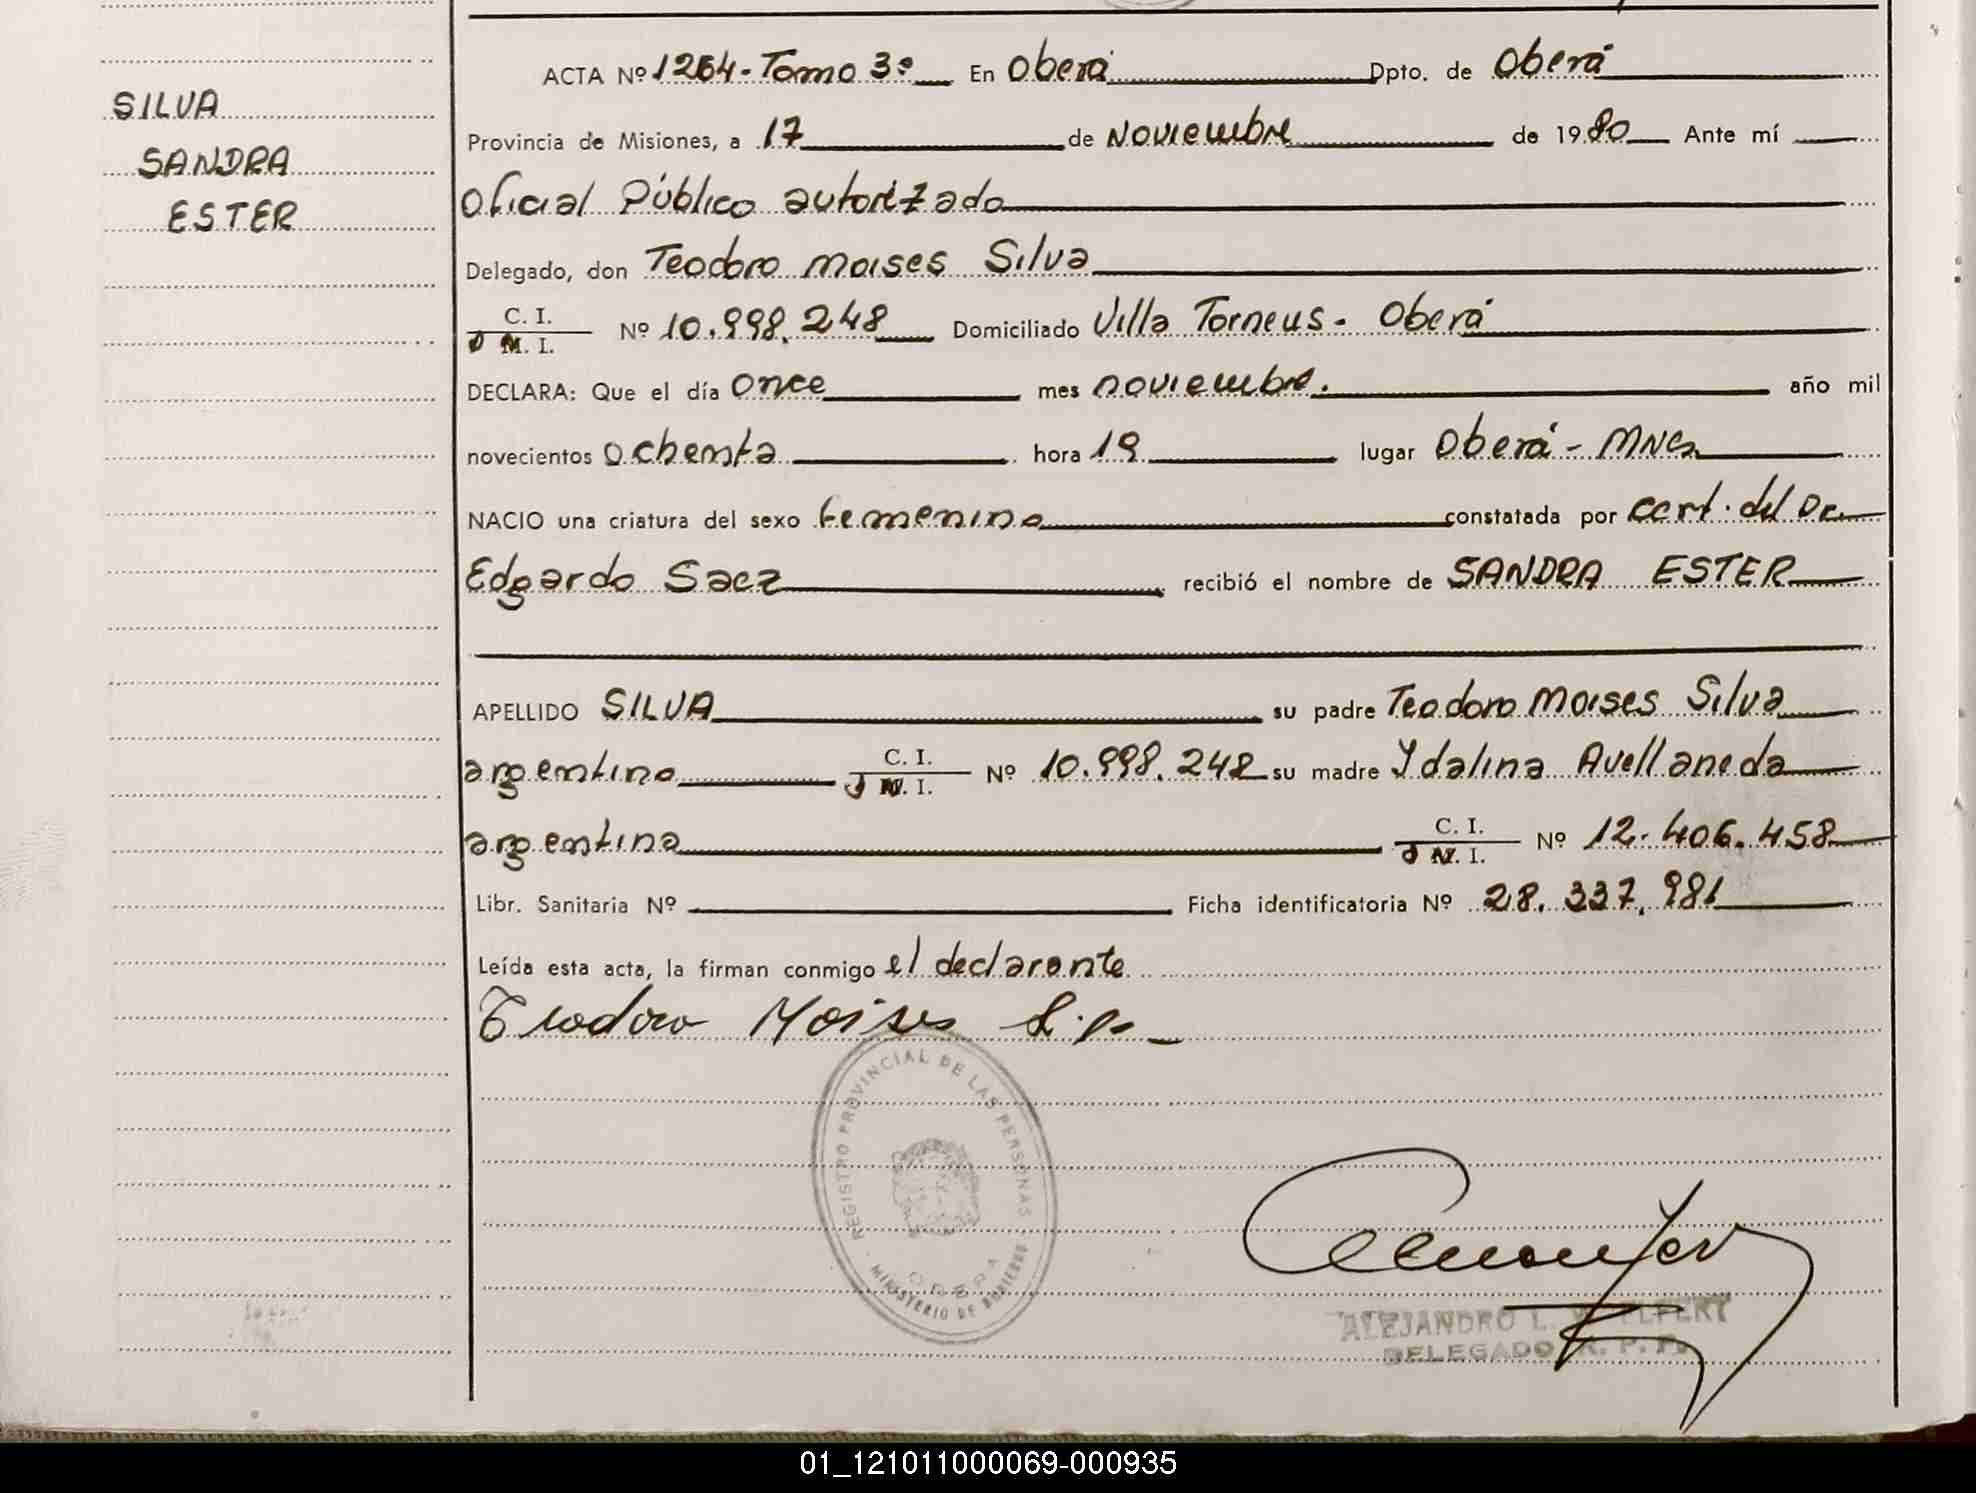 SILVA
SANDRA
ESTER
ACTA Nº 1264 - Tomo 3º En Oberá Dpto. de Oberá
Provincia de Misiones, a 17 de Noviembre de 1980 Ante mí
Oficial Público autorizado
Delegado, don Teodoro Moises Silva
C. I.
D M. I. Nº 10.998.248 Domiciliado Villa Torneus - Oberá
DECLARA: Que el día once mes noviembre. año mil
novecientos ochenta hora 19 lugar Oberá - MNes
NACIO una criatura del sexo femenino constatada por cert. del Dr.
Edgardo Saez recibió el nombre de SANDRA ESTER
APELLIDO SILVA su padre Teodoro Moises Silva
argentino C. I. D N. I. Nº 10.998.248 su madre Ydalina Avellaneda
argentina C. I. D N. I. Nº 12.406.458
Libr. Sanitaria Nº Ficha identificatoria Nº 28.337.981
Leída esta acta, la firman conmigo el declarante
Teodoro Moises
REGISTRO PROVINCIAL DE LAS PERSONAS
OBERA
MINISTERIO DE GOBIERNO
ALEJANDRO L.
DELEGADO R. P. P.
01_121011000069-000935